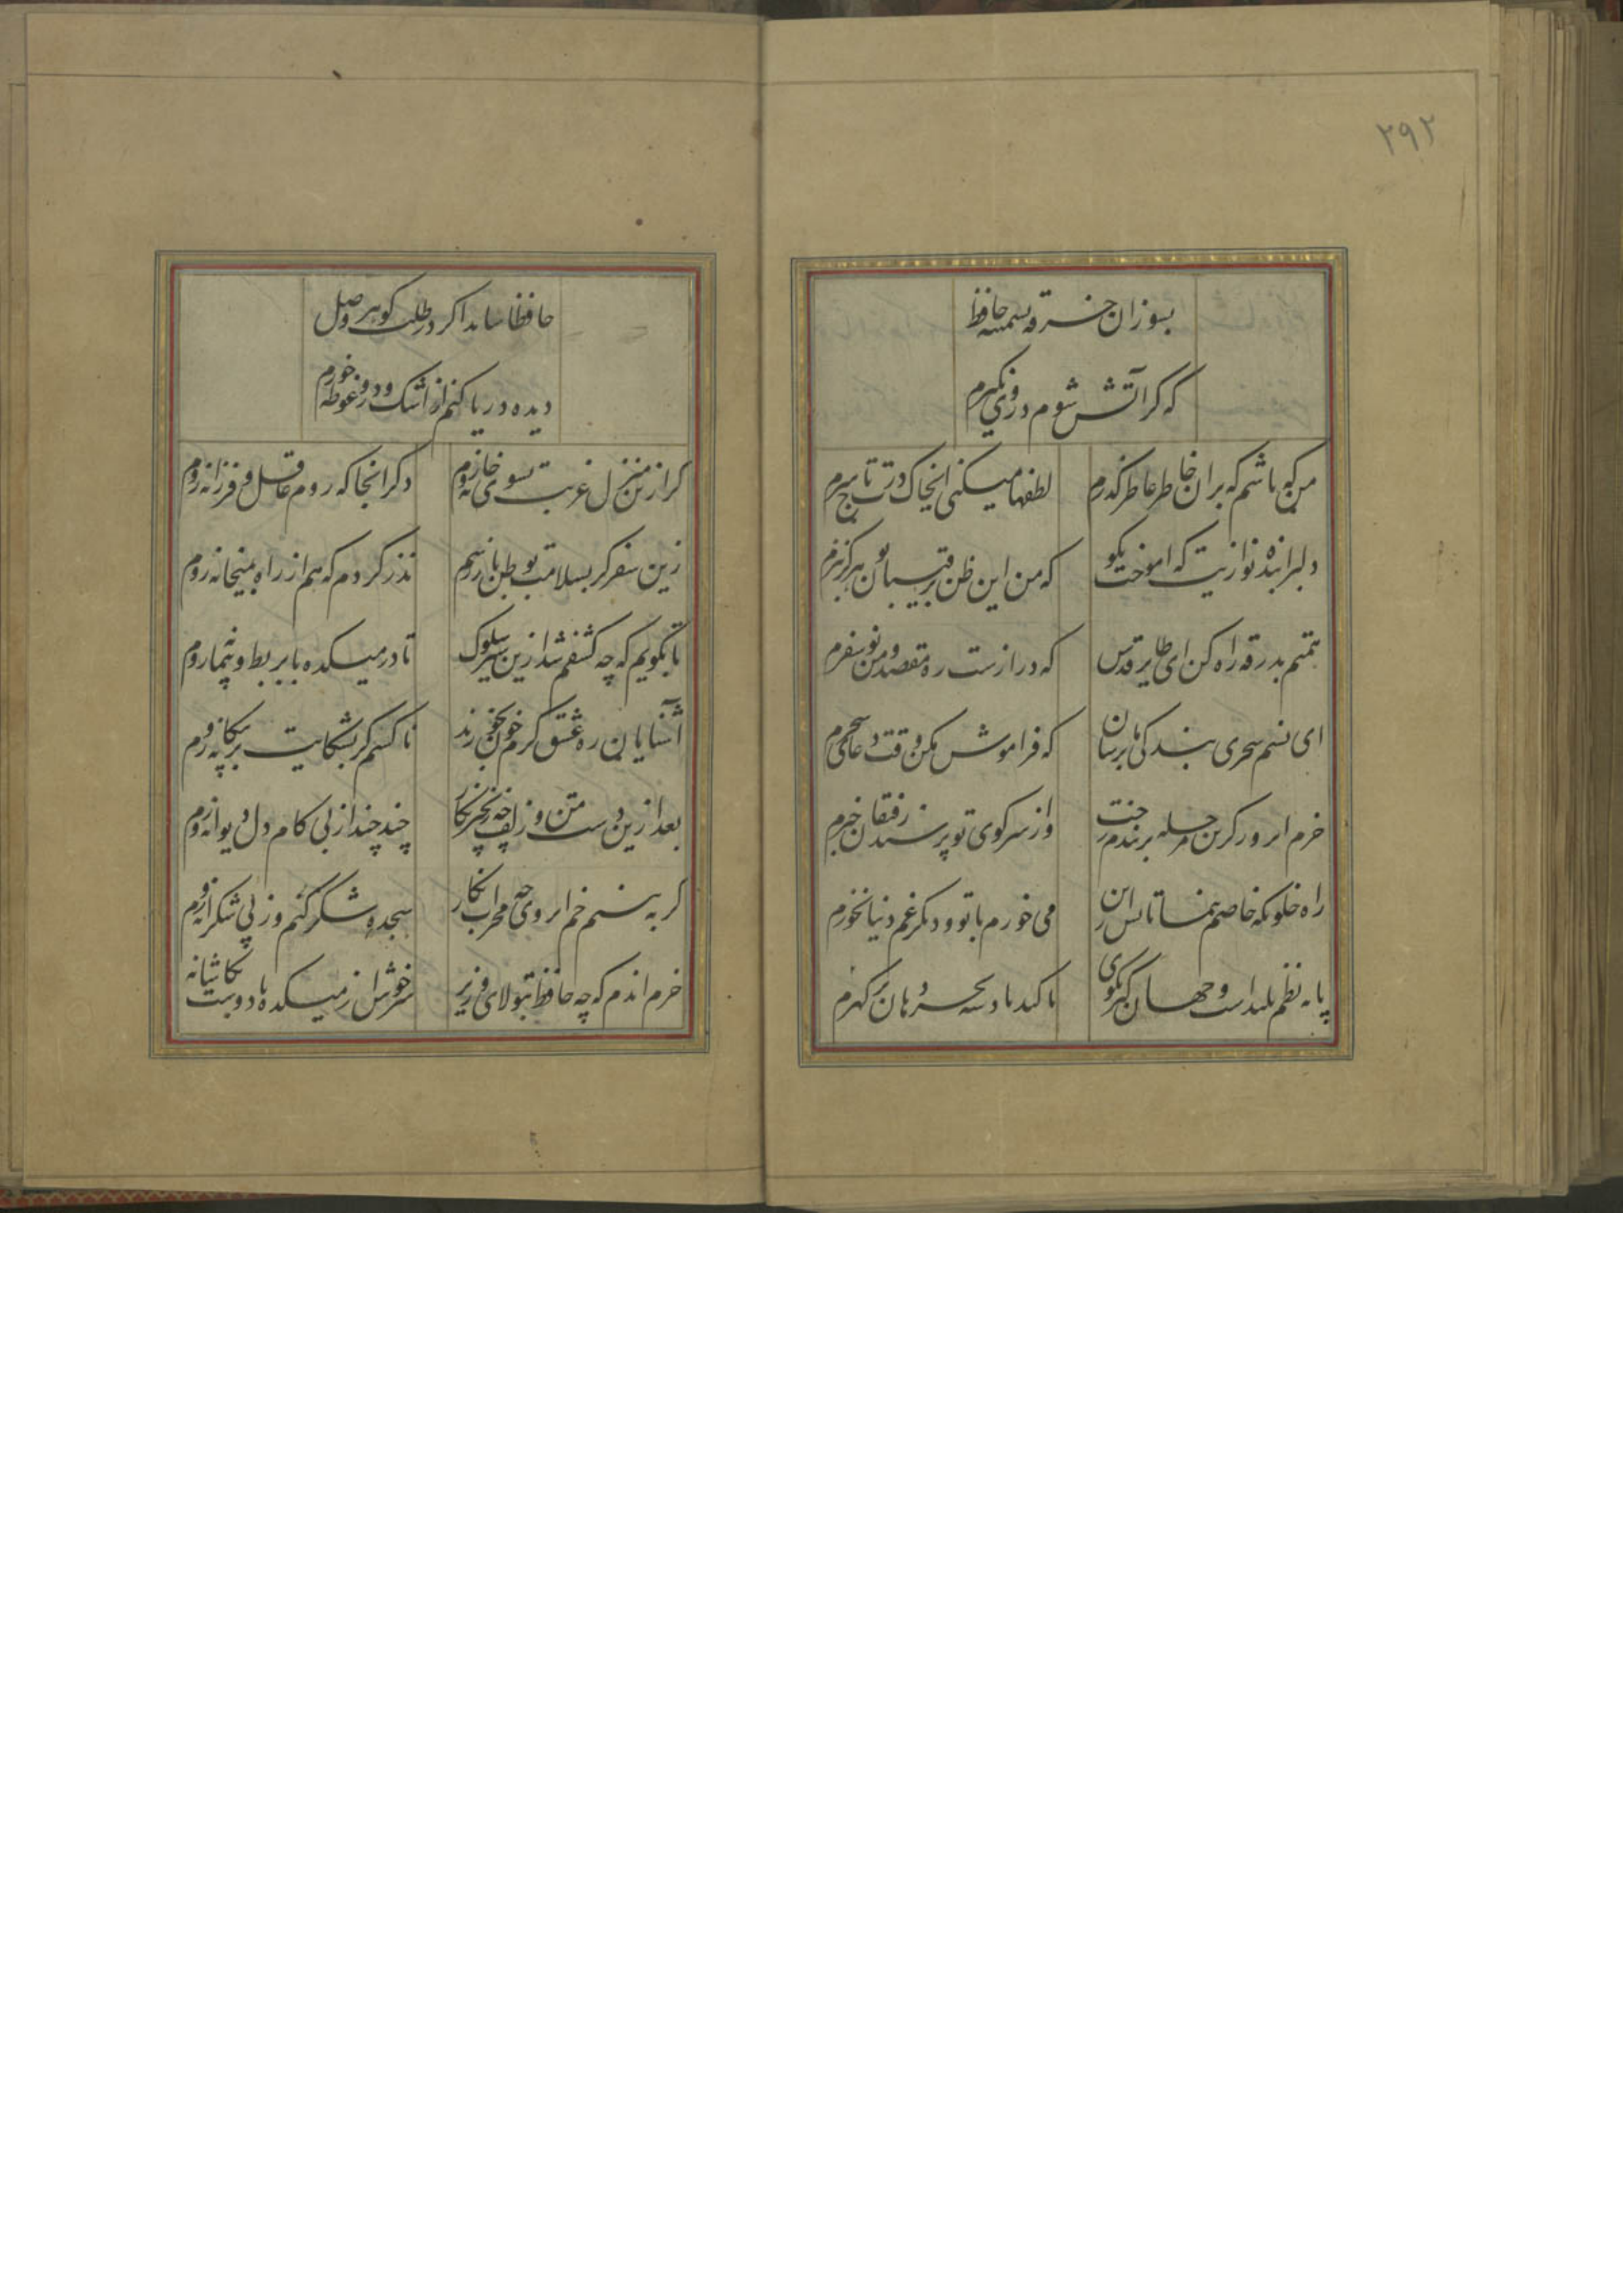 ۲۹۲
بسوز ان خرقه پشمینه حافظ
که کر آتش شوم در وی نکیرم
من که باشم که بران خاطر عاطر کذرم
لطفها میکنی ای خاک درت تاج سرم
دلبرا بنده نوازیت که اموخت بکو
که من این ظن برقیبان تو هرکز نبرم
همتم بدرقه راه کن ای طایر قدس
که درازست ره مقصد و من نوسفرم
ای نسیم سحری بندکی ما برسان
که فراموش مکن وقت دعای سحرم
خرم ان روز کزین مرحله بربندم رخت
واز سر کوی تو پرسند رفیقان خبرم
راه خلوتکه خاصم بنما تا پس ازین
می خورم با تو و دیکر غم دنیا نخورم
پایه نظم بلند است و جهان کیر بکوی
تا کند پادشه بحر دهان پر کهرم
حافظا شاید اکر در طلب کوهر وصل
دیده دریا کنم از اشک و درو غوطه خورم
کر ازین منزل غربت بسوی خانه روم
دکر انجا که روم عاقل و فرزانه روم
زین سفر کر بسلامت بوطن باز رسم
نذر کردم که هم از راه بمیخانه روم
تا بکویم که چه کشفم شد ازین سیر و سلوک
تا در میکده با بربط و پیمانه روم
آشنایان ره عشق کرم خون بخورند
ناکسم کر بشکایت بر بیکانه روم
بعد ازین دست من و زلف چو زنجیر نکار
چند چند از پی کام دل دیوانه روم
کر به بینم خم ابروی چو محراب نکار
سجده شکر کنم وز پی شکرانه روم
خرم اندم که چو حافظ بتولای وزیر
سرخوش از میکده با دوست بکاشانه